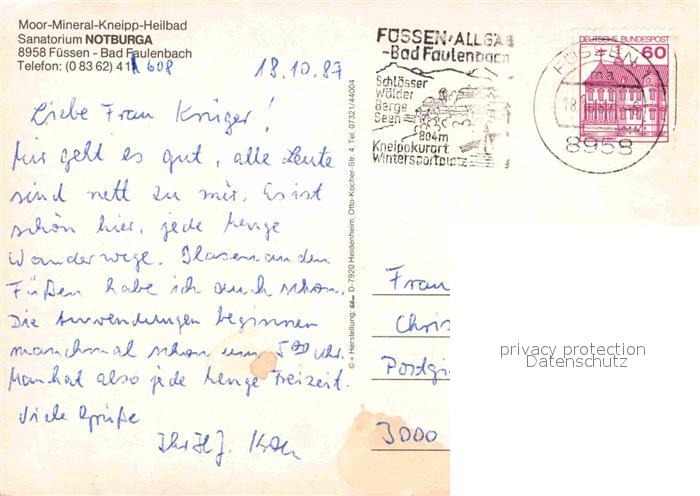 Moor-Mineral-Kneipp-Heilbad
Sanatorium NOTBURGA
8958 Füssen - Bad Faulenbach
Telefon: (0 83 62) 41 608
18.10.87
Liebe Frau Krüger!
Mir geht es gut, alle Leute
sind nett zu mir. Es ist
schön hier, jede Menge
Wanderwege. Blasen an den
Füßen habe ich auch schon.
Die Anwendungen beginnen
manchmal schon um 5 00 Uhr.
Man hat also jede Menge Freizeit.
Viele Grüße
Ihr H.J.
© + Herstellung: D-7920 Heidenheim, Otto-Kocher-Str. 4, Tel. 07321/44004
FÜSSEN/ALLGÄ
-Bad Faulenbach
Schlösser
Wälder
Berge
Seen
804m
Kneippkurort
Wintersportplatz
FÜSSEN
18
8958
DEUTSCHE BUNDESPOST
60
Frau
Chris
Postgi
3000
privacy protection
Datenschutz